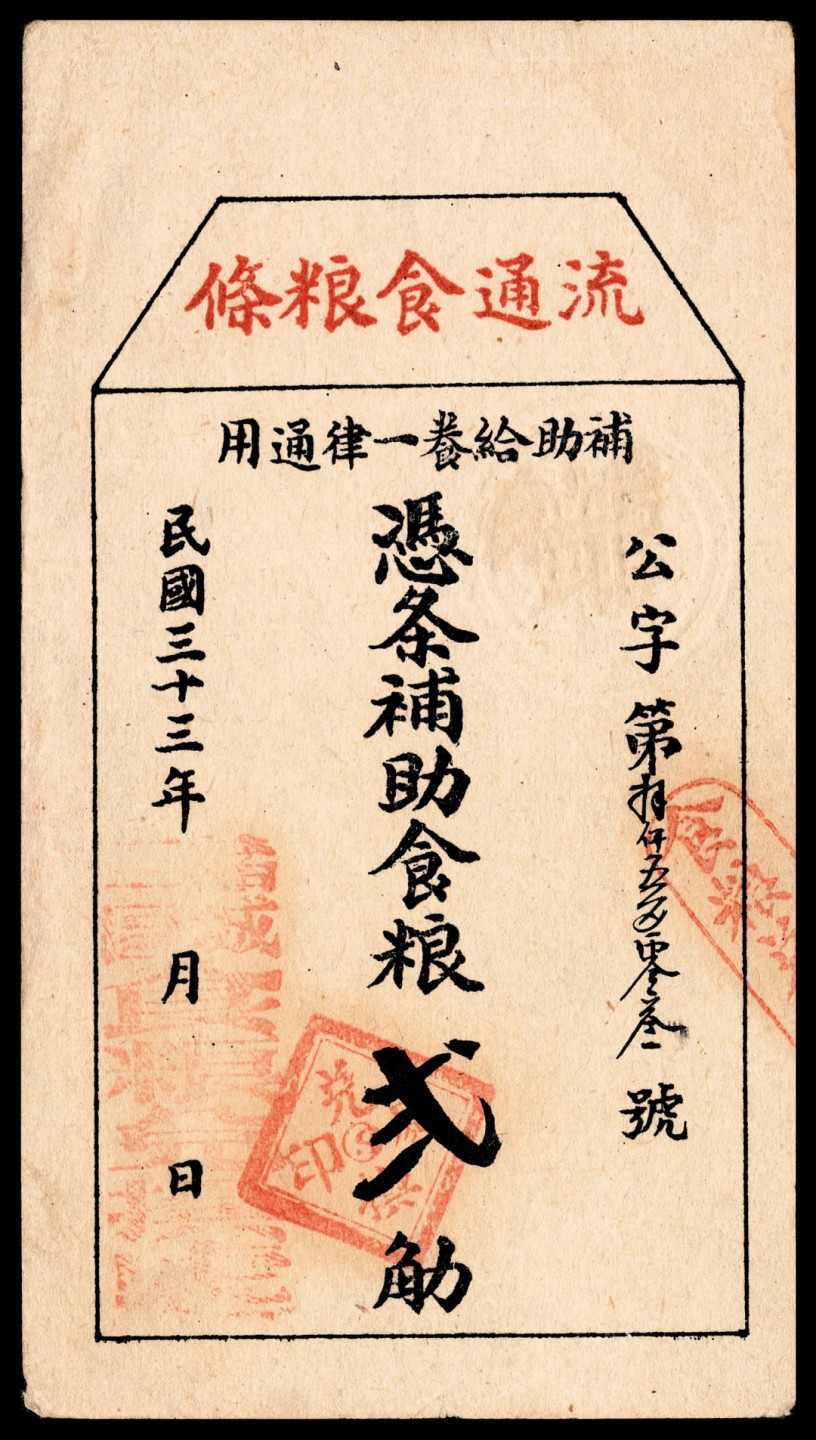 流通食粮條
補助給養一律通用
公字第拾仟五百零叁號
憑条補助食粮弍觔
民國三十三年 月 日
兌
印